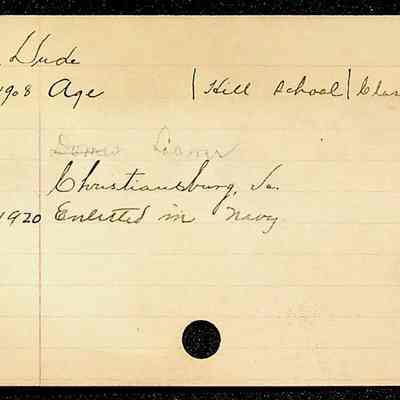 Dude
1908 Age | Hill School | Clas
Christiansburg, Va.
1920 Enlisted in Navy